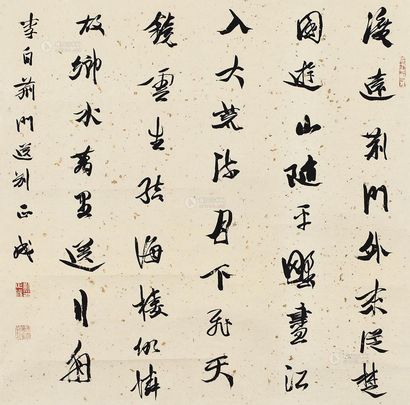 渡遠荊門外來從楚
國遊山隨平野盡江
入大荒流月下飛天
鏡雲生結海樓仍憐
故鄉水萬里送行舟
李白荊門送別 正成